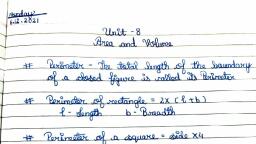 Monday
6.12.2021
Unit - 8
Area and Volume
# Perimeter - The total length of the boundary
of a closed figure is called its Perimeter
# Perimeter of rectangle = 2X (l+b)
l - length b - Breadth
# Perimeter of a square = side X4